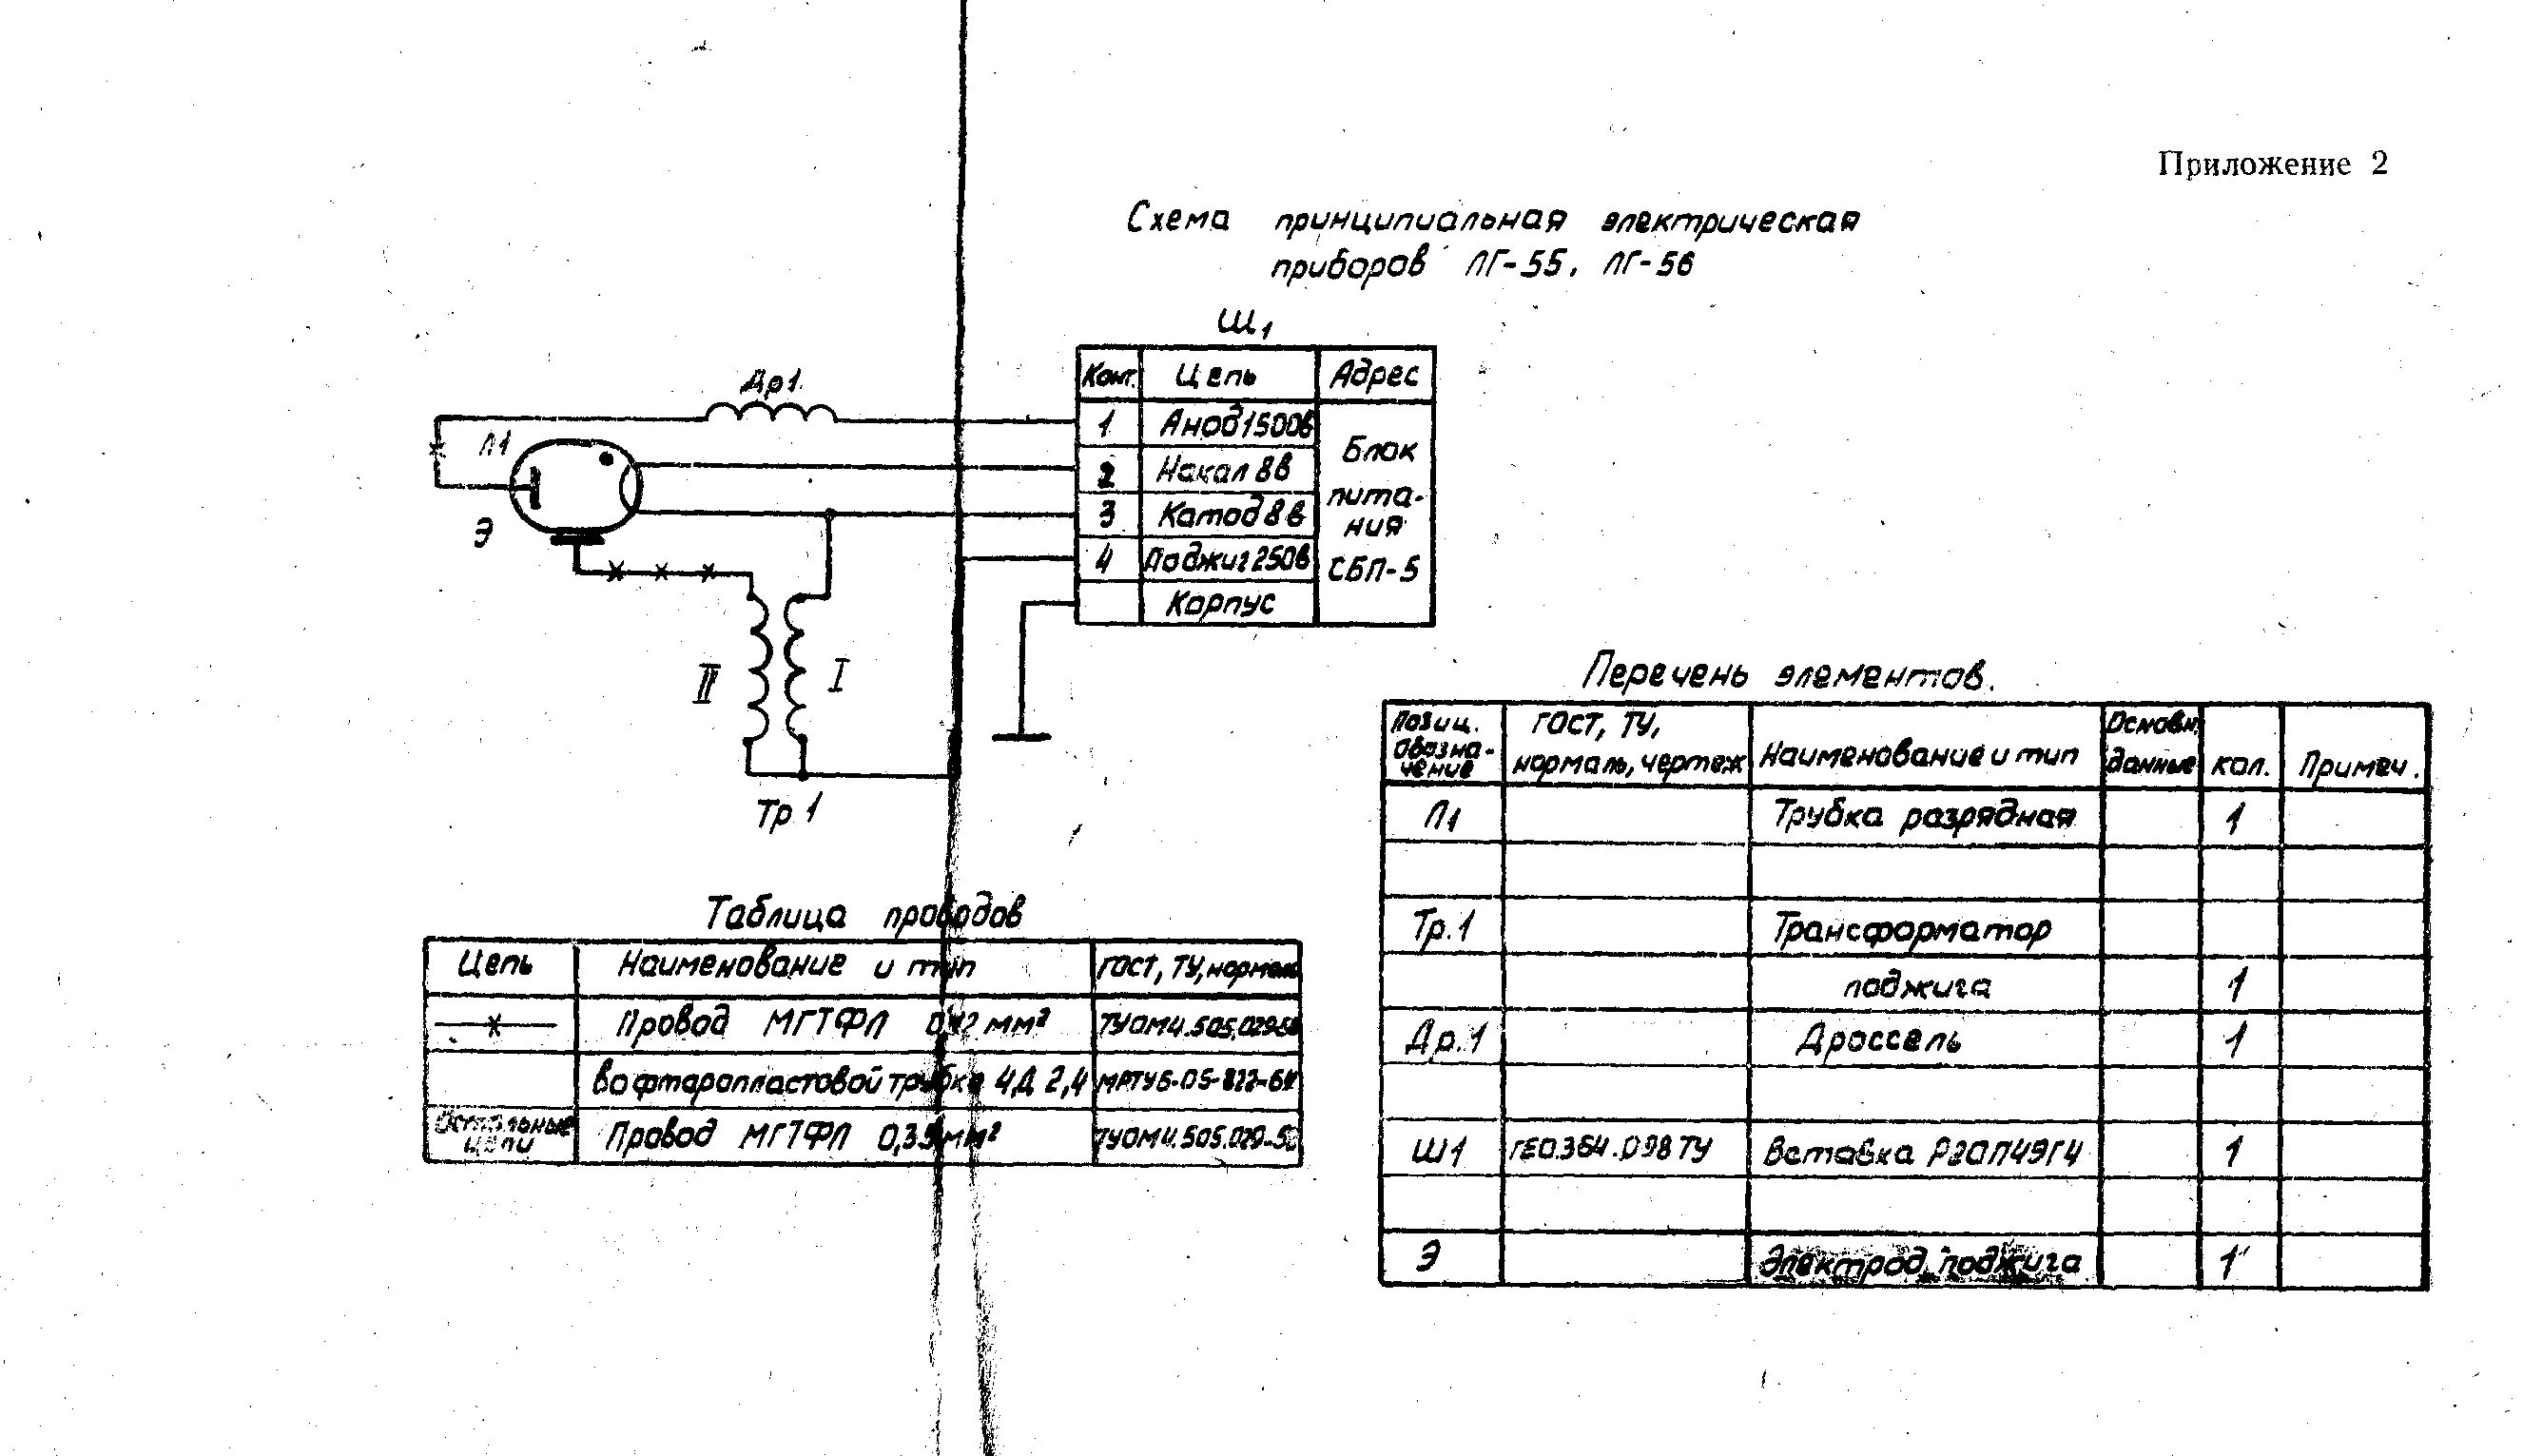 Приложение 2
Схема принципиальная электрическая
приборов ЛГ-55, ЛГ-56
Ш1
Конт. Цепь Адрес
1 Анод 1500в
2 Накал 8в
3 Катод 8в
4 Поджиг 250в
Корпус
Блок
пита-
ния
СБП-5
Др1
Л1
Э
II I
Тр 1
Перечень элементов.
Позиц. обозна-чение ГОСТ, ТУ, нормаль, чертеж Наименование и тип Основн. данные кол. Примеч.
Л1 Трубка разрядная 1
Тр.1 Трансформатор
поджига 1
Др.1 Дроссель 1
Ш1 ГЕ0.364.098 ТУ Вставка Р20П4ЭГ4 1
Э Электрод поджига 1
Таблица проводов
Цепь Наименование и тип ГОСТ, ТУ, нормаль
Провод МГТФЛ мм²
во фторопластовой трубке 4Д 2,4
Остальные цепи Провод МГТФЛ 0,35 мм²